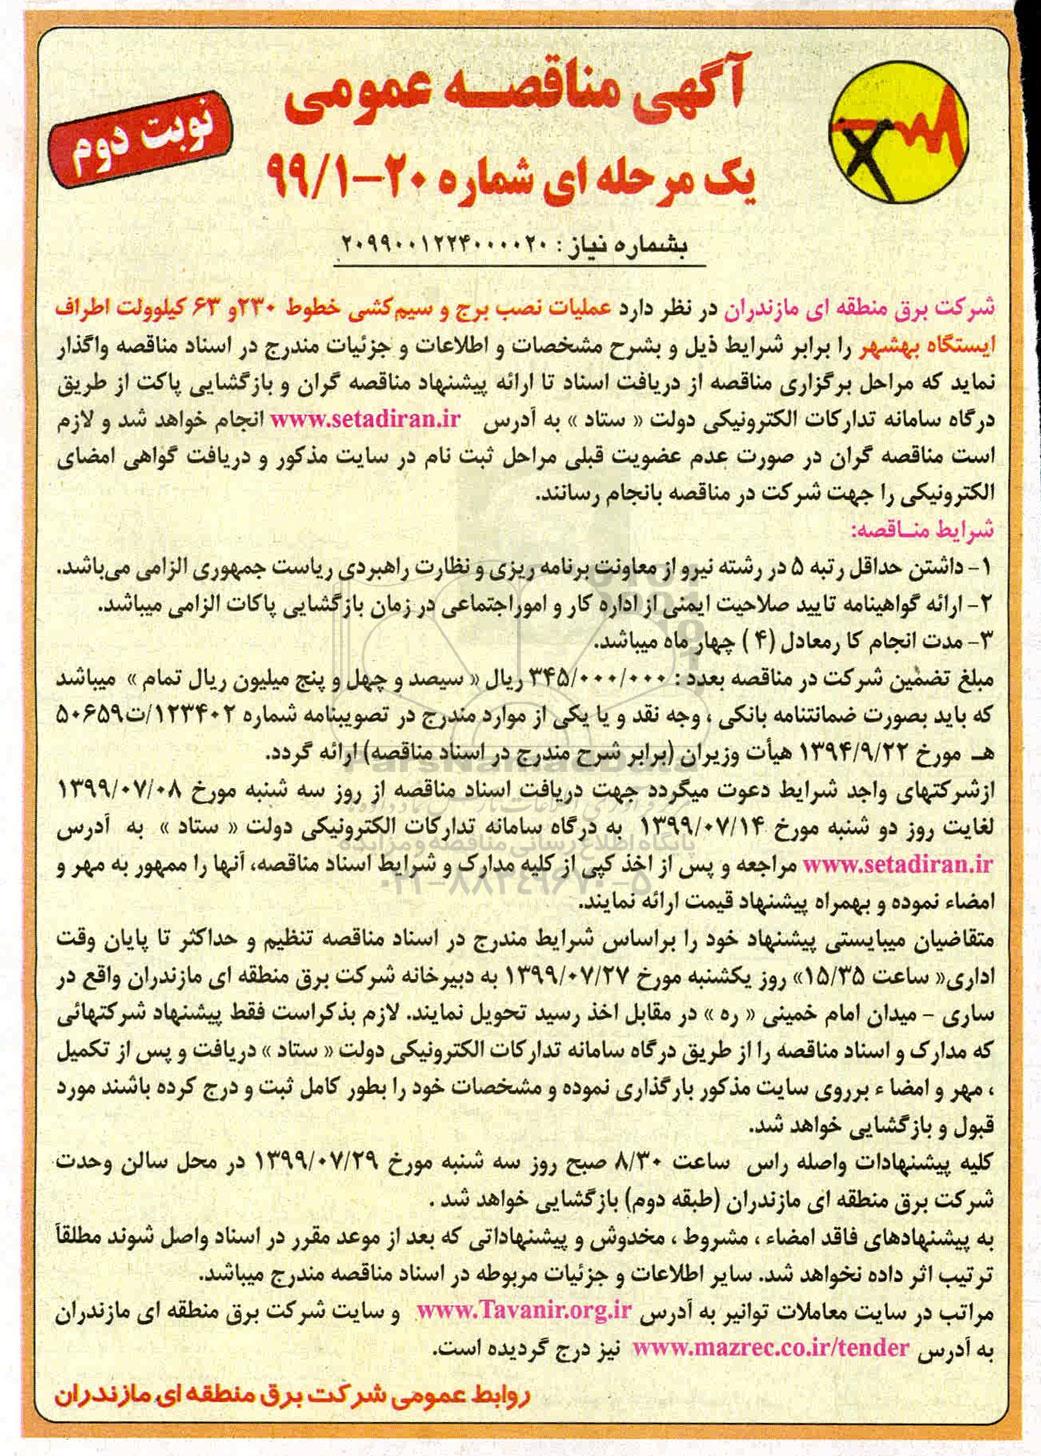 آگهی مناقصه عمومی
نوبت دوم
یک مرحله ای شماره ۲۰-۹۹/۱
بشماره نیاز : ۲۰۹۹۰۰۱۲۲۴۰۰۰۰۲۰
شرکت برق منطقه ای مازندران در نظر دارد عملیات نصب برج و سیم‌کشی خطوط ۲۳۰و ۶۳ کیلوولت اطراف
ایستگاه بهشهر را برابر شرایط ذیل و بشرح مشخصات و اطلاعات و جزئیات مندرج در اسناد مناقصه واگذار
نماید که مراحل برگزاری مناقصه از دریافت اسناد تا ارائه پیشنهاد مناقصه گران و بازگشایی پاکت از طریق
درگاه سامانه تدارکات الکترونیکی دولت « ستاد » به آدرس www.setadiran.ir انجام خواهد شد و لازم
است مناقصه گران در صورت عدم عضویت قبلی مراحل ثبت نام در سایت مذکور و دریافت گواهی امضای
الکترونیکی را جهت شرکت در مناقصه بانجام رسانند.
شرایط مناقصه:
۱- داشتن حداقل رتبه ۵ در رشته نیرو از معاونت برنامه ریزی و نظارت راهبردی ریاست جمهوری الزامی می‌باشد.
۲- ارائه گواهینامه تایید صلاحیت ایمنی از اداره کار و اموراجتماعی در زمان بازگشایی پاکات الزامی میباشد.
۳- مدت انجام کا رمعادل (۴ ) چهار ماه میباشد.
مبلغ تضمین شرکت در مناقصه بعدد : ۳۴۵/۰۰۰/۰۰۰ ریال « سیصد و چهل و پنج میلیون ریال تمام » میباشد
که باید بصورت ضمانتنامه بانکی ، وجه نقد و یا یکی از موارد مندرج در تصویبنامه شماره ۱۲۳۴۰۲/ت۵۰۶۵۹
هـ مورخ ۱۳۹۴/۹/۲۲ هیأت وزیران (برابر شرح مندرج در اسناد مناقصه) ارائه گردد.
ازشرکتهای واجد شرایط دعوت میگردد جهت دریافت اسناد مناقصه از روز سه شنبه مورخ ۱۳۹۹/۰۷/۰۸
لغایت روز دو شنبه مورخ ۱۳۹۹/۰۷/۱۴ به درگاه سامانه تدارکات الکترونیکی دولت « ستاد » به آدرس
www.setadiran.ir مراجعه و پس از اخذ کپی از کلیه مدارک و شرایط اسناد مناقصه، آنها را ممهور به مهر و
امضاء نموده و بهمراه پیشنهاد قیمت ارائه نمایند.
متقاضیان میبایستی پیشنهاد خود را براساس شرایط مندرج در اسناد مناقصه تنظیم و حداکثر تا پایان وقت
اداری« ساعت ۱۵/۳۵» روز یکشنبه مورخ ۱۳۹۹/۰۷/۲۷ به دبیرخانه شرکت برق منطقه ای مازندران واقع در
ساری - میدان امام خمینی « ره » در مقابل اخذ رسید تحویل نمایند. لازم بذکراست فقط پیشنهاد شرکتهائی
که مدارک و اسناد مناقصه را از طریق درگاه سامانه تدارکات الکترونیکی دولت « ستاد » دریافت و پس از تکمیل
، مهر و امضا ء برروی سایت مذکور بارگذاری نموده و مشخصات خود را بطور کامل ثبت و درج کرده باشند مورد
قبول و بازگشایی خواهد شد.
کلیه پیشنهادات واصله راس ساعت ۸/۳۰ صبح روز سه شنبه مورخ ۱۳۹۹/۰۷/۲۹ در محل سالن وحدت
شرکت برق منطقه ای مازندران (طبقه دوم) بازگشایی خواهد شد .
به پیشنهادهای فاقد امضاء ، مشروط ، مخدوش و پیشنهاداتی که بعد از موعد مقرر در اسناد واصل شوند مطلقاً
ترتیب اثر داده نخواهد شد. سایر اطلاعات و جزئیات مربوطه در اسناد مناقصه مندرج میباشد.
مراتب در سایت معاملات توانیر به آدرس www.Tavanir.org.ir و سایت شرکت برق منطقه ای مازندران
به آدرس www.mazrec.co.ir/tender نیز درج گردیده است.
روابط عمومی شرکت برق منطقه ای مازندران
پایگاه اطلاع رسانی مناقصه و مزایده
۰۲۱-۸۸۳۴۹۶۷۰-۵